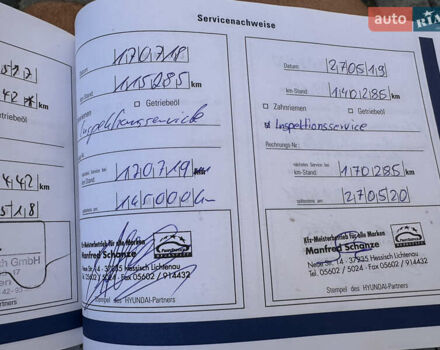 Servicenachweise
auto
RIA
170718
115285 km
Getriebeöl
Inspektionsservice
nächstes Service bei
km-Stand:
170719
145000 km
spätestens am:
Kfz-Meisterbetrieb für alle Marken
Manfred Schanze
Neue Str. 14 · 37235 Hessisch Lichtenau
Tel. 05602 / 5024 · Fax 05602 / 914432
Stempel des HYUNDAI-Partners
Datum
270519
km-Stand:
140285 km
Zahnriemen
Getriebeöl
Inspektionsservice
Rechnungs-Nr.:
nächstes Service bei
km-Stand:
170285 km
spätestens am:
270520
Kfz-Meisterbetrieb für alle Marken
Manfred Schanze
Neue Str. 14 · 37235 Hessisch Lichtenau
Tel. 05602 / 5024 · Fax 05602 / 914432
Stempel des HYUNDAI-Partners
km
km
GmbH